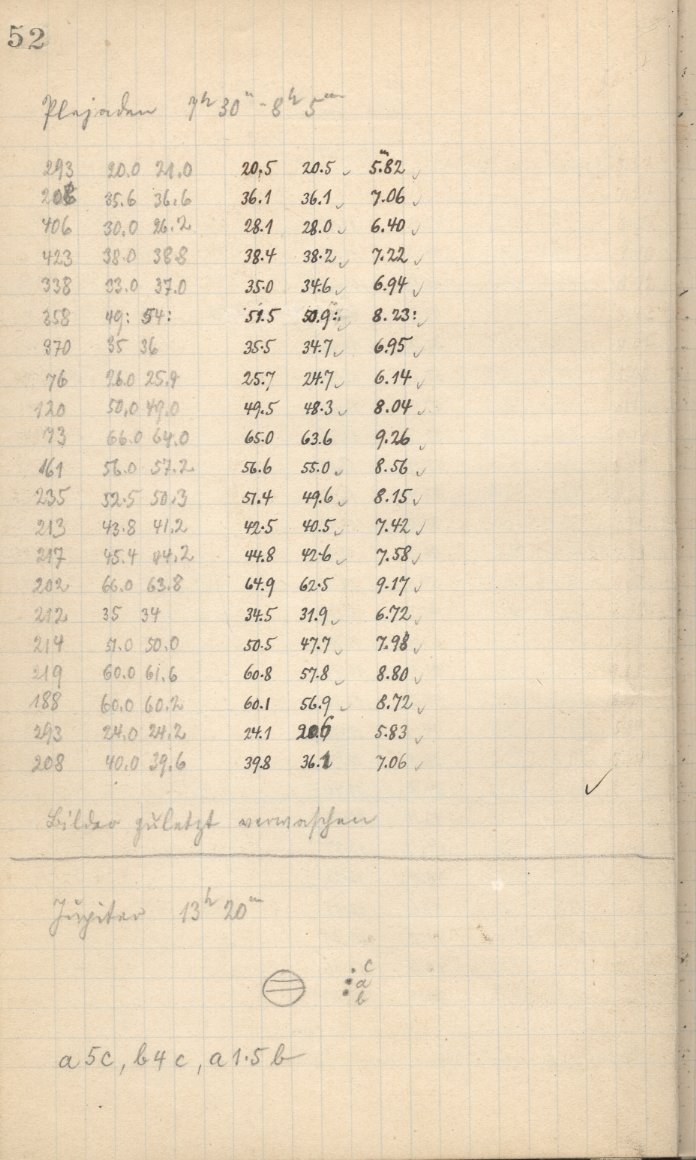 52
Plejaden 7h 30m - 8h 5m
293 20.0 21.0 20,5 20.5 5.82
208 35.6 36.6 36.1 36.1 7.06
406 30.0 26.2 28.1 28.0 6.40
423 38.0 38.8 38.4 38.2 7.22
338 33.0 37.0 35.0 34.6 6.94
358 49: 54: 51.5 50.9: 8.23:
370 35 36 35.5 34.7 6.95
76 26.0 25.4 25.7 24.7 6.14
120 50.0 49.0 49.5 48.3 8.04
66.0 64.0 65.0 63.6 9.26
161 56.0 57.2 56.6 55.0 8.56
235 52.5 50.3 51.4 49.6 8.15
213 43.8 41.2 42.5 40.5 7.42
217 45.4 44.2 44.8 42.6 7.58
202 66.0 63.8 64.9 62.5 9.17
212 35 34 34.5 31.9 6.72
214 51.0 50.0 50.5 47.7 7.98
219 60.0 61.6 60.8 57.8 8.80
188 60.0 60.2 60.1 56.9 8.72
293 24.0 24.2 24.1 20.6 5.83
208 40.0 39.6 39.8 36.1 7.06
Bilder zuletzt verwaschen
Jupiter 13h 20m
c
a
b
a5c, b4c, a1.5b